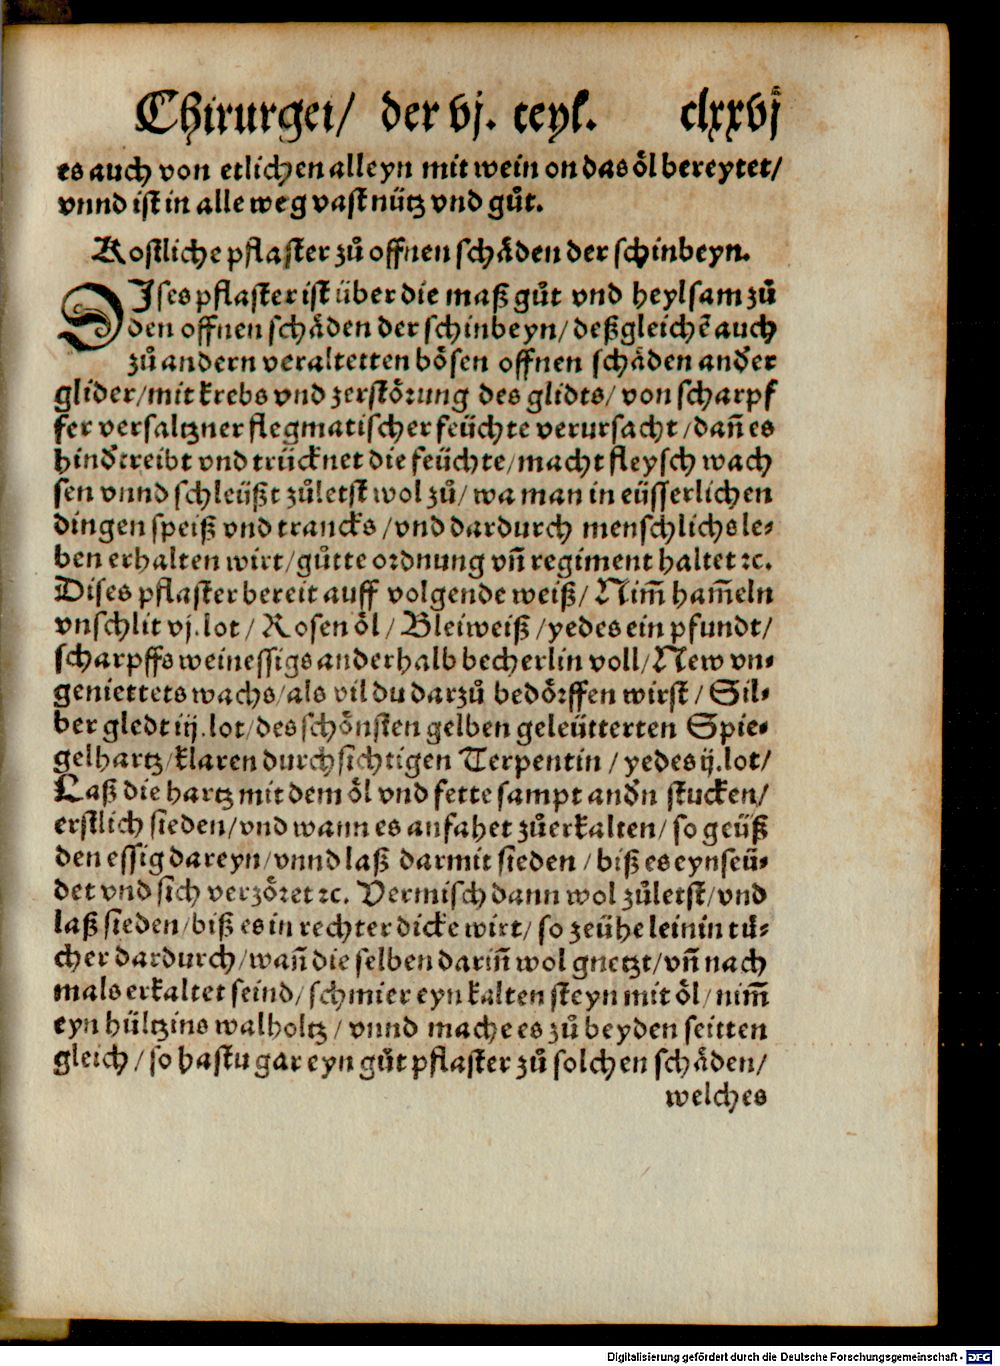 Chirurgei/ der vj. teyl. clxxvj
es auch von etlichen alleyn mit wein on das oͤl bereytet/
vnnd ist in alle weg vast nütz vnd gůt.
Kostliche pflaster zů offnen schaͤden der schinbeyn.
DIses pflaster ist über die maß gůt vnd heylsam zů
den offnen schaͤden der schinbeyn/ deßgleichẽ auch
zů andern veraltetten boͤsen offnen schaͤden anďer
glider/ mit krebs vnd zerstoͤrung des glidts/ von scharpf
fer versaltzner flegmatischer feüchte verursacht/ dañ es
hinďtreibt vnd trücknet die feüchte/ macht fleysch wach
sen vnnd schleüßt zůletst wol zů/ wa man in eüsserlichen
dingen speiß vnd trancks/ vnd dardurch menschlichs le-
ben erhalten wirt/ gůtte ordnung vñ regiment haltet ꝛc.
Dises pflaster bereit auff volgende weiß/ Nim̃ ham̃eln
vnschlit vj. lot/ Rosen oͤl/ Bleiweiß/ yedes ein pfundt/
scharpffs weinessigs anderhalb becherlin voll/ New vn-
geniettets wachs/ als vil du darzů bedoͤrffen wirst/ Sil-
ber gledt iij. lot/ des schoͤnsten gelben geleütterten Spie-
gelhartz/ klaren durchsichtigen Terpentin/ yedes ij. lot/
Laß die hartz mit dem oͤl vnd fette sampt anďn stucken/
erstlich sieden/ vnd wann es anfahet zůerkalten/ so geüß
den essig dareyn/ vnnd laß darmit sieden/ biß es eynseü-
det vnd sich verzoͤret ꝛc. Vermisch dann wol zůletst/ vnd
laß sieden/ biß es in rechter dicke wirt/ so zeühe leinin tü-
cher dardurch/ wañ die selben dariñ wol gnetzt/ vñ nach
mals erkaltet seind/ schmier eyn kalten steyn mit oͤl/ nim̃
eyn hültzins walholtz/ vnnd mache es zů beyden seitten
gleich/ so hastu gar eyn gůt pflaster zů solchen schaͤden/
welches
Digitalisierung gefördert durch die Deutsche Forschungsgemeinschaft - DFG